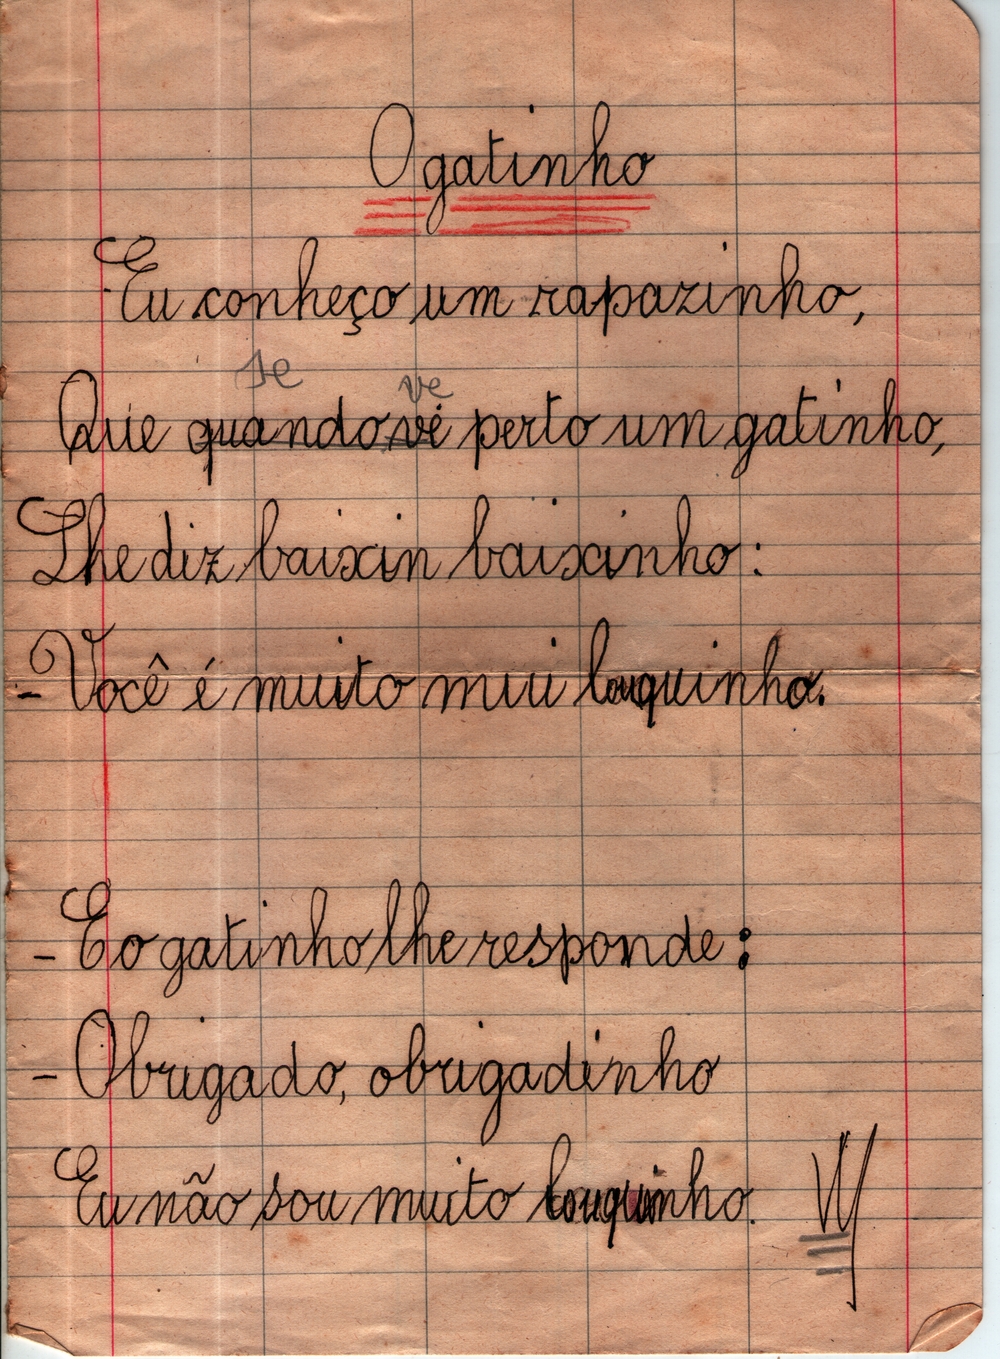 O gatinho
Eu conheço um rapazinho,
se ve
Que quando vê perto um gatinho,
Lhe diz baixin baixinho:
- Você é muito miu louquinho.
- E o gatinho lhe responde:
- Obrigado, obrigadinho
Eu não sou muito louquinho.